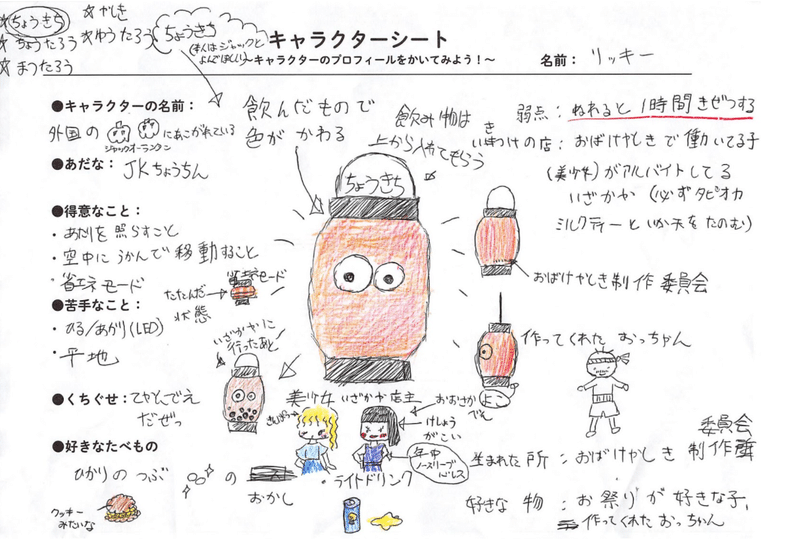 ☆ちょうきち ☆やしき
☆ちょうたろう ☆ゆうたろう
☆まつたろう
ちょうきち
(本人はジャックと
よんでほしい)
キャラクターシート
〜キャラクターのプロフィールをかいてみよう！〜
名前： リッキー
●キャラクターの名前：
外国の にあこがれている
ジャックオーランタン
●あだな： JKちょうちん
●得意なこと：
・あたりを照らすこと
・空中にうかんで移動すること
・省エネモード
●苦手なこと：
・ひる/あかり(LED)
・平地
●くちぐせ：てやんでえ
だぜっ
●好きなたべもの
ひかりのつぶ の
おかし
クッキー
みたいな
飲んだもので
色が かわる
飲み物は
上から入れてもらう
ちょうきち
省エネモード
たたんだ
状態
いざかやに
行ったあと
弱点： ぬれると1時間きぜつする
き
いきつけの店：おばけやしきで働いてる子
(美少女)がアルバイトしてる
いざかや (必ずタピオカ
ミルクティーといか天をたのむ)
おばけやしき制作委員会
作ってくれた おっちゃん
美少女 いざかや店主
きんぱつ
おおさか
でえ
よこ
けしょう
がこい
年中
ノースリーブ
・ライトドリンク
生まれた所：おばけやしき 委員会
制作
好きな物：お祭りが好きな子、
作ってくれたおっちゃん